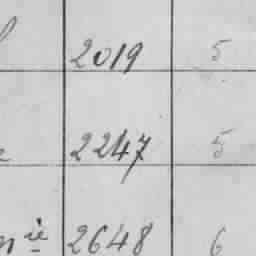 2019 5
2247 5
2648 6